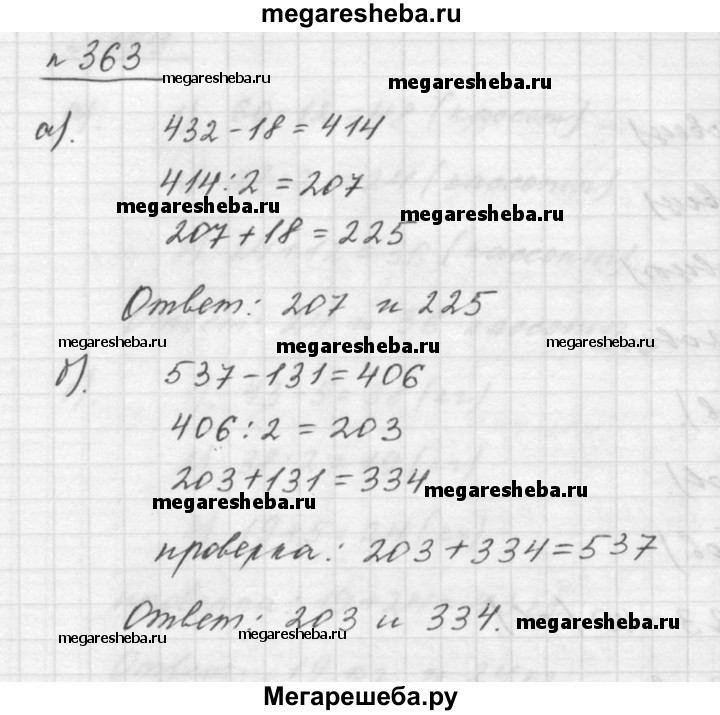 megaresheba.ru
№ 363
megaresheba.ru megaresheba.ru
а). 432 - 18 = 414
414 : 2 = 207
megaresheba.ru megaresheba.ru
207 + 18 = 225
Ответ: 207 и 225
megaresheba.ru megaresheba.ru megaresheba.ru
б). 537 - 131 = 406
406 : 2 = 203
203 + 131 = 334
megaresheba.ru megaresheba.ru
проверка: 203 + 334 = 537
Ответ: 203 и 334.
megaresheba.ru megaresheba.ru megaresheba.ru
Мегарешеба.ру